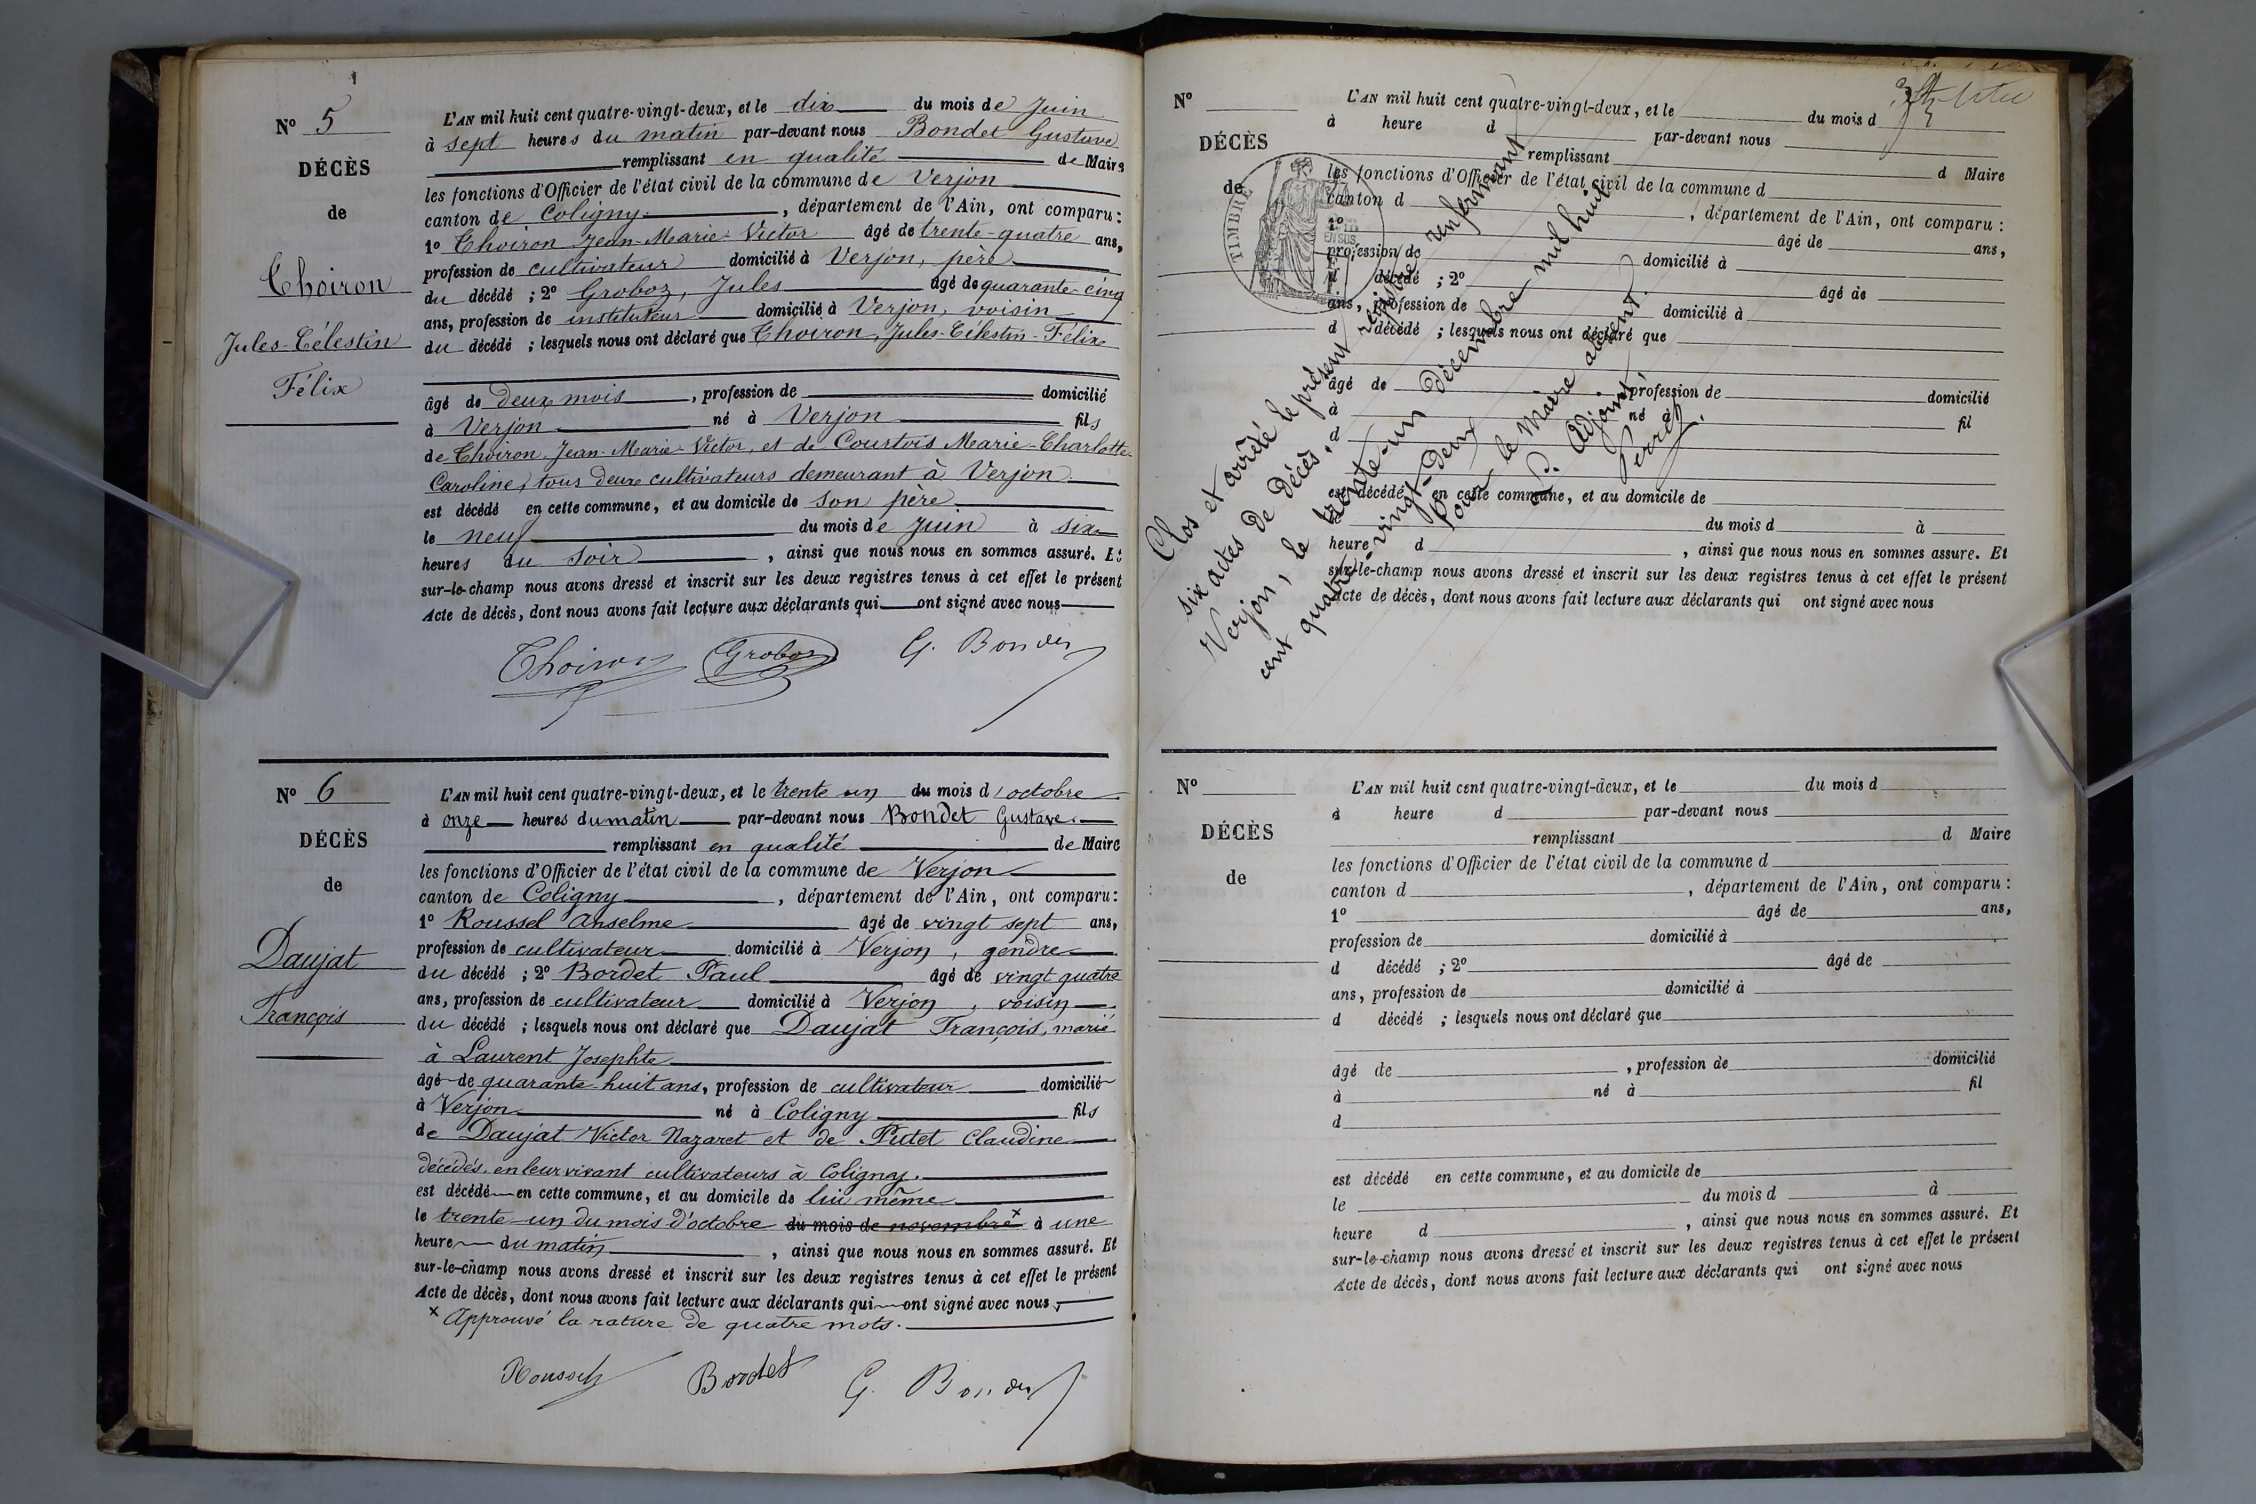 N° 5
DÉCÈS
de
Thoiron
Jules-Célestin
Félix
L'AN mil huit cent quatre-vingt-deux, et le dix du mois de Juin
à sept heures du matin par-devant nous Bondet Gustave
remplissant en qualité de Maire
les fonctions d'Officier de l'état civil de la commune de Verjon
canton de Coligny, département de l'Ain, ont comparu :
1° Thoiron Jean-Marie-Victor âgé de trente-quatre ans,
profession de cultivateur domicilié à Verjon, père
du décédé ; 2° Groboz, Jules âgé de quarante-cinq
ans, profession de instituteur domicilié à Verjon, voisin
du décédé ; lesquels nous ont déclaré que Thoiron, Jules-Célestin-Félix
âgé de deux mois, profession de domicilié
à Verjon né à Verjon fils
de Thoiron Jean-Marie-Victor, et de Courtois Marie-Charlotte-
Caroline, tous deux cultivateurs demeurant à Verjon
est décédé en cette commune, et au domicile de son père
le neuf du mois de Juin à six
heures du soir, ainsi que nous nous en sommes assuré. Et
sur-le-champ nous avons dressé et inscrit sur les deux registres tenus à cet effet le présent
Acte de décès, dont nous avons fait lecture aux déclarants qui ont signé avec nous
Thoiron Groboz G. Bondet
N° 6
DÉCÈS
de
Daujat
François
L'AN mil huit cent quatre-vingt-deux, et le trente un du mois d'octobre
à onze heures du matin par-devant nous Bondet Gustave
remplissant en qualité de Maire
les fonctions d'Officier de l'état civil de la commune de Verjon
canton de Coligny, département de l'Ain, ont comparu :
1° Roussel Anselme âgé de vingt sept ans,
profession de cultivateur domicilié à Verjon, gendre
du décédé ; 2° Bordet Paul âgé de vingt quatre
ans, profession de cultivateur domicilié à Verjon, voisin
du décédé ; lesquels nous ont déclaré que Daujat François, marié
à Laurent Josephte
âgé de quarante-huit ans, profession de cultivateur domicilié
à Verjon né à Coligny fils
de Daujat Victor Nazaret et de Putet Claudine
décédés, en leur vivant cultivateurs à Coligny.
est décédé en cette commune, et au domicile de lui même
le trente-un du mois d'octobre du mois de novembre x à une
heure du matin, ainsi que nous nous en sommes assuré. Et
sur-le-champ nous avons dressé et inscrit sur les deux registres tenus à cet effet le présent
Acte de décès, dont nous avons fait lecture aux déclarants qui ont signé avec nous
x Approuvé la rature de quatre mots.
Roussel Bordet G. Bondet
N°
DÉCÈS
de
TIMBRE
L'AN mil huit cent quatre-vingt-deux, et le du mois d
à heure d par-devant nous
remplissant d Maire
les fonctions d'Officier de l'état civil de la commune d
canton d , département de l'Ain, ont comparu :
1° âgé de ans,
profession de domicilié à
d décédé ; 2° âgé de
ans, profession de domicilié à
d décédé ; lesquels nous ont déclaré que
âgé de profession de domicilié
à né à fil
d
est décédé en cette commune, et au domicile de
du mois d à
heure d , ainsi que nous nous en sommes assuré. Et
sur-le-champ nous avons dressé et inscrit sur les deux registres tenus à cet effet le présent
Acte de décès, dont nous avons fait lecture aux déclarants qui ont signé avec nous
Clos et arrêté le présent registre renfermant
six actes de décès.
Verjon, le trente-un décembre mil huit
cent quatre-vingt-deux
Pour le Maire absent.
L'Adjoint,
N°
DÉCÈS
de
L'AN mil huit cent quatre-vingt-deux, et le du mois d
à heure d par-devant nous
remplissant d Maire
les fonctions d'Officier de l'état civil de la commune d
canton d , département de l'Ain, ont comparu :
1° âgé de ans,
profession de domicilié à
d décédé ; 2° âgé de
ans, profession de domicilié à
d décédé ; lesquels nous ont déclaré que
âgé de , profession de domicilié
à né à fil
d
est décédé en cette commune, et au domicile de
le du mois d à
heure d , ainsi que nous nous en sommes assuré. Et
sur-le-champ nous avons dressé et inscrit sur les deux registres tenus à cet effet le présent
Acte de décès, dont nous avons fait lecture aux déclarants qui ont signé avec nous